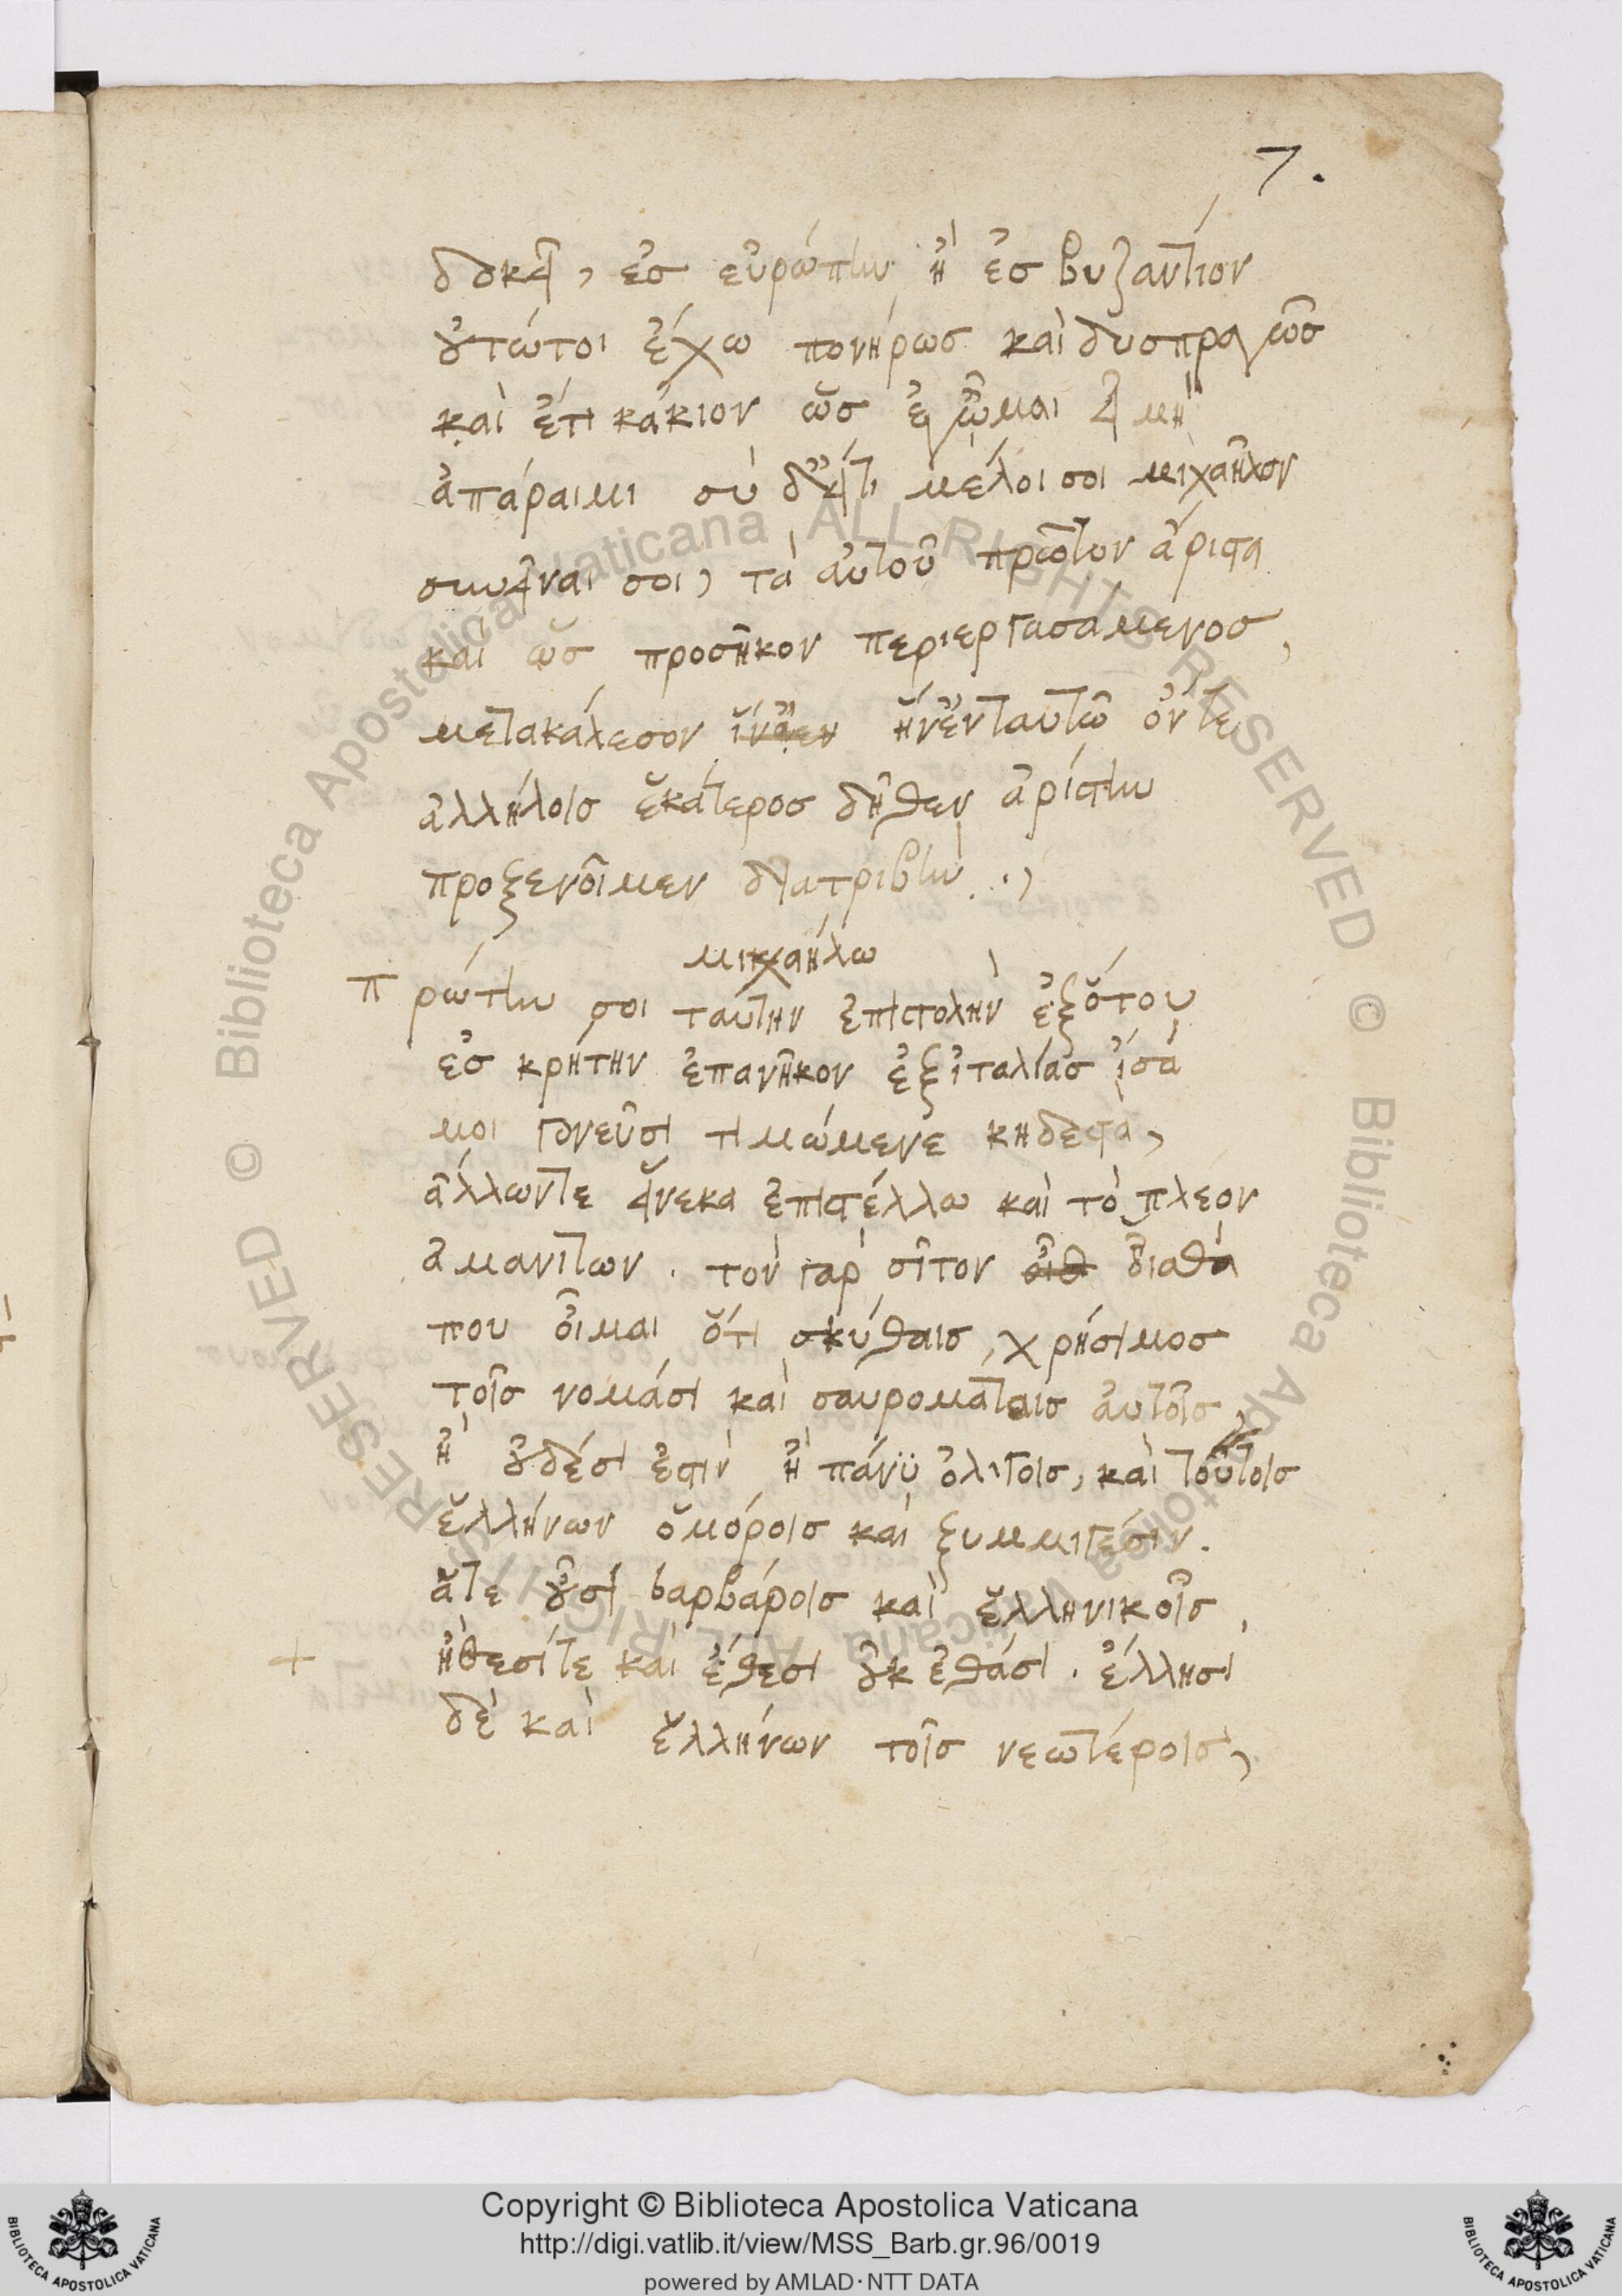 7.
δοκεῖ, ἐσ εὐρώπην ἢ ἐσ βυζάντιον
οὑτώτοι ἔχω πονήρωσ καὶ δυσπραγῶσ
καὶ ἔτι κάκιον ὡσ ἐγᾦμαι εἰ μὴ
ἀπάραιμι σὺ δ' εἴτι μέλοι σοι μιχαῆλον
συνεῖναι σοι, τὰ αὐτοῦ πρῶτον ἄριστα
καὶ ὡσ προσῆκον περιεργασάμενοσ,
μετακάλεσον ἡνένταυτῶ ὄντε
ἀλλήλοισ ἑκάτεροσ δῆθεν ἀρίστην
προξενοῖμεν διατριβήν .,
μιχαήλω
Πρώτην σοι ταύτην ἐπιστολὴν ἐξότου
ἐσ κρήτην ἐπανῆκον ἐξιταλίασ ἴσά
μοι γονεῦσι τιμώμενε κηδεστὰ,
ἄλλωντε εἵνεκα ἐπιστέλλω καὶ τὸ πλέον
ἀμανιτων . τὸν γὰρ σῖτον οἶσθά
που οἶμαι ὅτι σκύθαισ, χρήσιμοσ
τοῖσ νομάσι καὶ σαυρομάταισ αὐτοῖσ,
ἢ οὐδέσι ἐστὶν ἢ πάνϋ ὀλίγοισ, καὶ τούτοισ
ἑλλήνων ὁμόροισ καὶ ξυμμιγέσιν.
ἅτε οὖσι βαρβάροισ καὶ ἑλληνικοῖσ,
ἤθεσίτε καὶ ἔθεσι οὐκ ἐθάσι . ἕλλησι
δὲ καὶ ἑλλήνων τοῖσ νεωτέροισ,
Copyright © Biblioteca Apostolica Vaticana
http://digi.vatlib.it/view/MSS_Barb.gr.96/0019
powered by AMLAD·NTT DATA